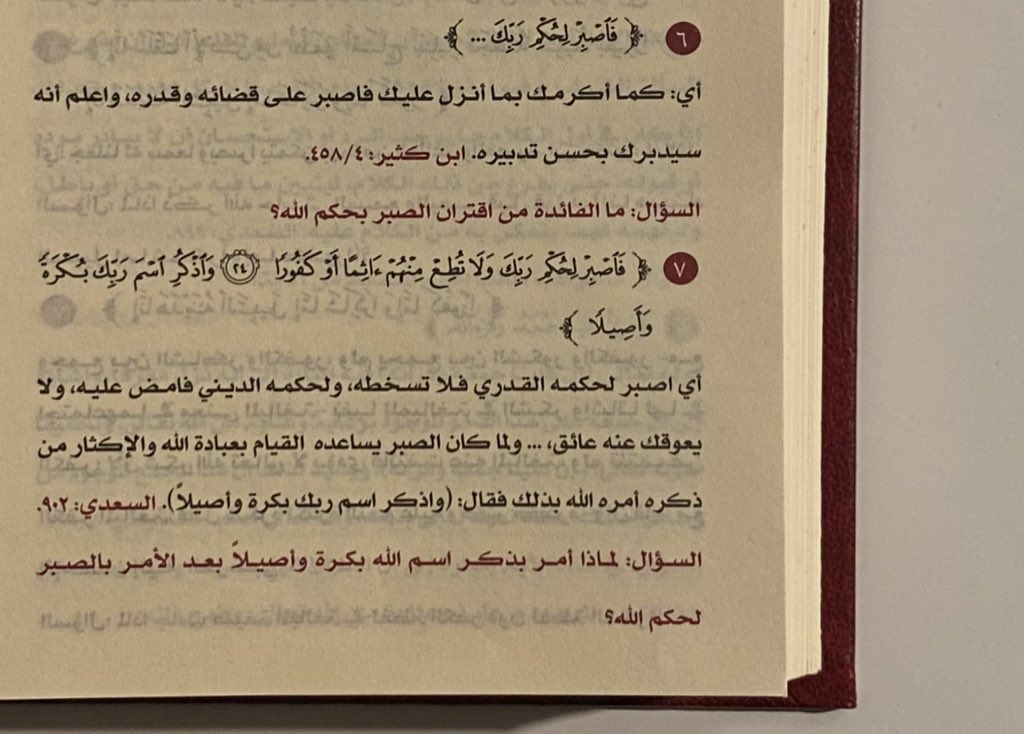 ٦ ﴿ فَٱصْبِرْ لِحُكْمِ رَبِّكَ ... ﴾
أي: كما أكرمك بما أنزل عليك فاصبر على قضائه وقدره، واعلم أنه
سيدبرك بحسن تدبيره. ابن كثير: ٤٥٨/٤.
السؤال: ما الفائدة من اقتران الصبر بحكم الله؟
٧ ﴿ فَٱصْبِرْ لِحُكْمِ رَبِّكَ وَلَا تُطِعْ مِنْهُمْ ءَاثِمًا أَوْ كَفُورًا ۝٢٤ وَٱذْكُرِ ٱسْمَ رَبِّكَ بُكْرَةً
وَأَصِيلًا ﴾
أي اصبر لحكمه القدري فلا تسخطه، ولحكمه الديني فامض عليه، ولا
يعوقك عنه عائق، ... ولما كان الصبر يساعده القيام بعبادة الله والإكثار من
ذكره أمره الله بذلك فقال: (واذكر اسم ربك بكرة وأصيلاً). السعدي: ٩٠٢.
السؤال: لماذا أمر بذكر اسم الله بكرة وأصيلاً بعد الأمر بالصبر
لحكم الله؟